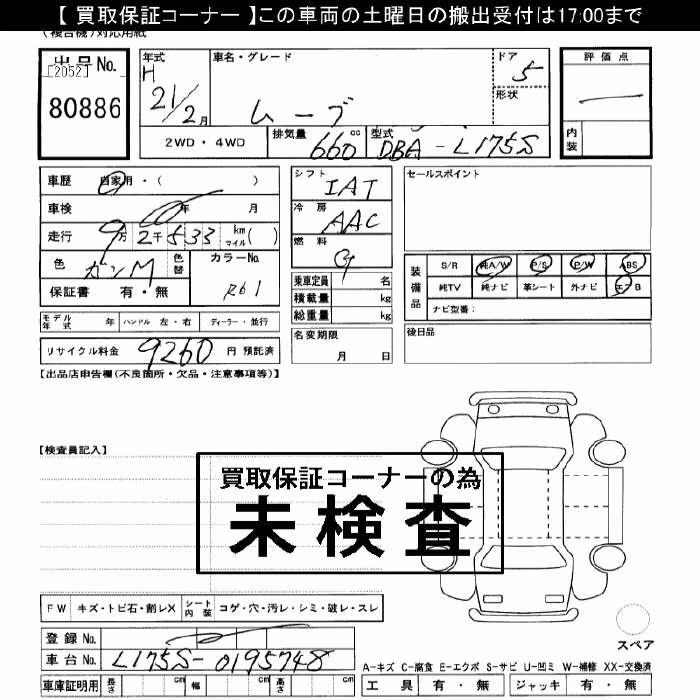 【 買取保証コーナー 】この車両の土曜日の搬出受付は17:00まで
(複合機)対応用紙
出品No.
[2052]
80886
年式
H
21/2月
車名・グレード
ムーブ
ドア
5
形状
評価点
内装
2WD・4WD
排気量
660 cc
型式
DBA-L175S
車歴 自家用・( )
車検 年 月
走行 9万2千533 km マイル( )
色 ガンM 色替
カラーNo.
R61
保証書 有・無
シフト
IAT
冷房
AAC
燃料
G
乗車定員 名
積載量 kg
総重量 kg
セールスポイント
装備品
S/R 純A/W P/S P/W ABS
純TV 純ナビ 革シート 外ナビ エアB
ナビ型番:
モデル年式 年 ハンドル 左・右 ディーラー・並行
名変期限
月 日
後日品
リサイクル料金 9260 円 預託済
【出品店申告欄(不良箇所・欠品・注意事項等)】
【検査員記入】
買取保証コーナーの為
未検査
FW キズ・トビ石・割レX シート内装 コゲ・穴・汚レ・シミ・破レ・スレ
登録No.
車台No. L175S-0195748
車庫証明用 長さ cm 幅 cm 高さ cm
スペア
A-キズ C-腐食 E-エクボ S-サビ U-凹ミ W-補修 XX-交換済
工具 有・無 ジャッキ 有・無